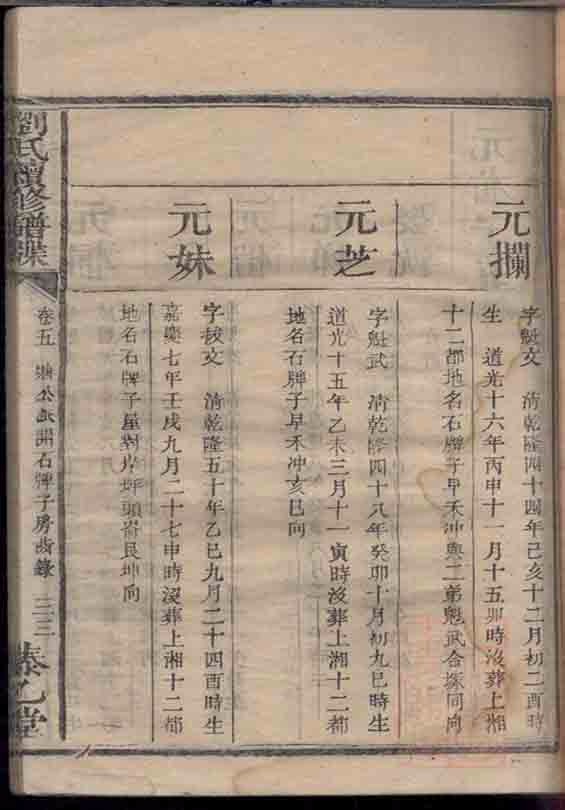 元攔
字魁文　清乾隆四十四年己亥十二月初二酉時
生　道光十六年丙申十一月十五卯時沒葬上湘
十二都地名石牌子早禾冲與二弟魁武合塚同向
元芝
字魁武　清乾隆四十八年癸卯十月初九巳時生
道光十五年乙未三月十一寅時沒葬上湘十二都
地名石牌子早禾冲亥巳向
元妹
字拔文　清乾隆五十年乙巳九月二十四酉時生
嘉慶七年壬戌九月二十七申時沒葬上湘十二都
地名石牌子屋對岸坪頭崙艮坤向
劉氏續修譜牒
卷五　公 開石牌子房齒錄　二三
堂